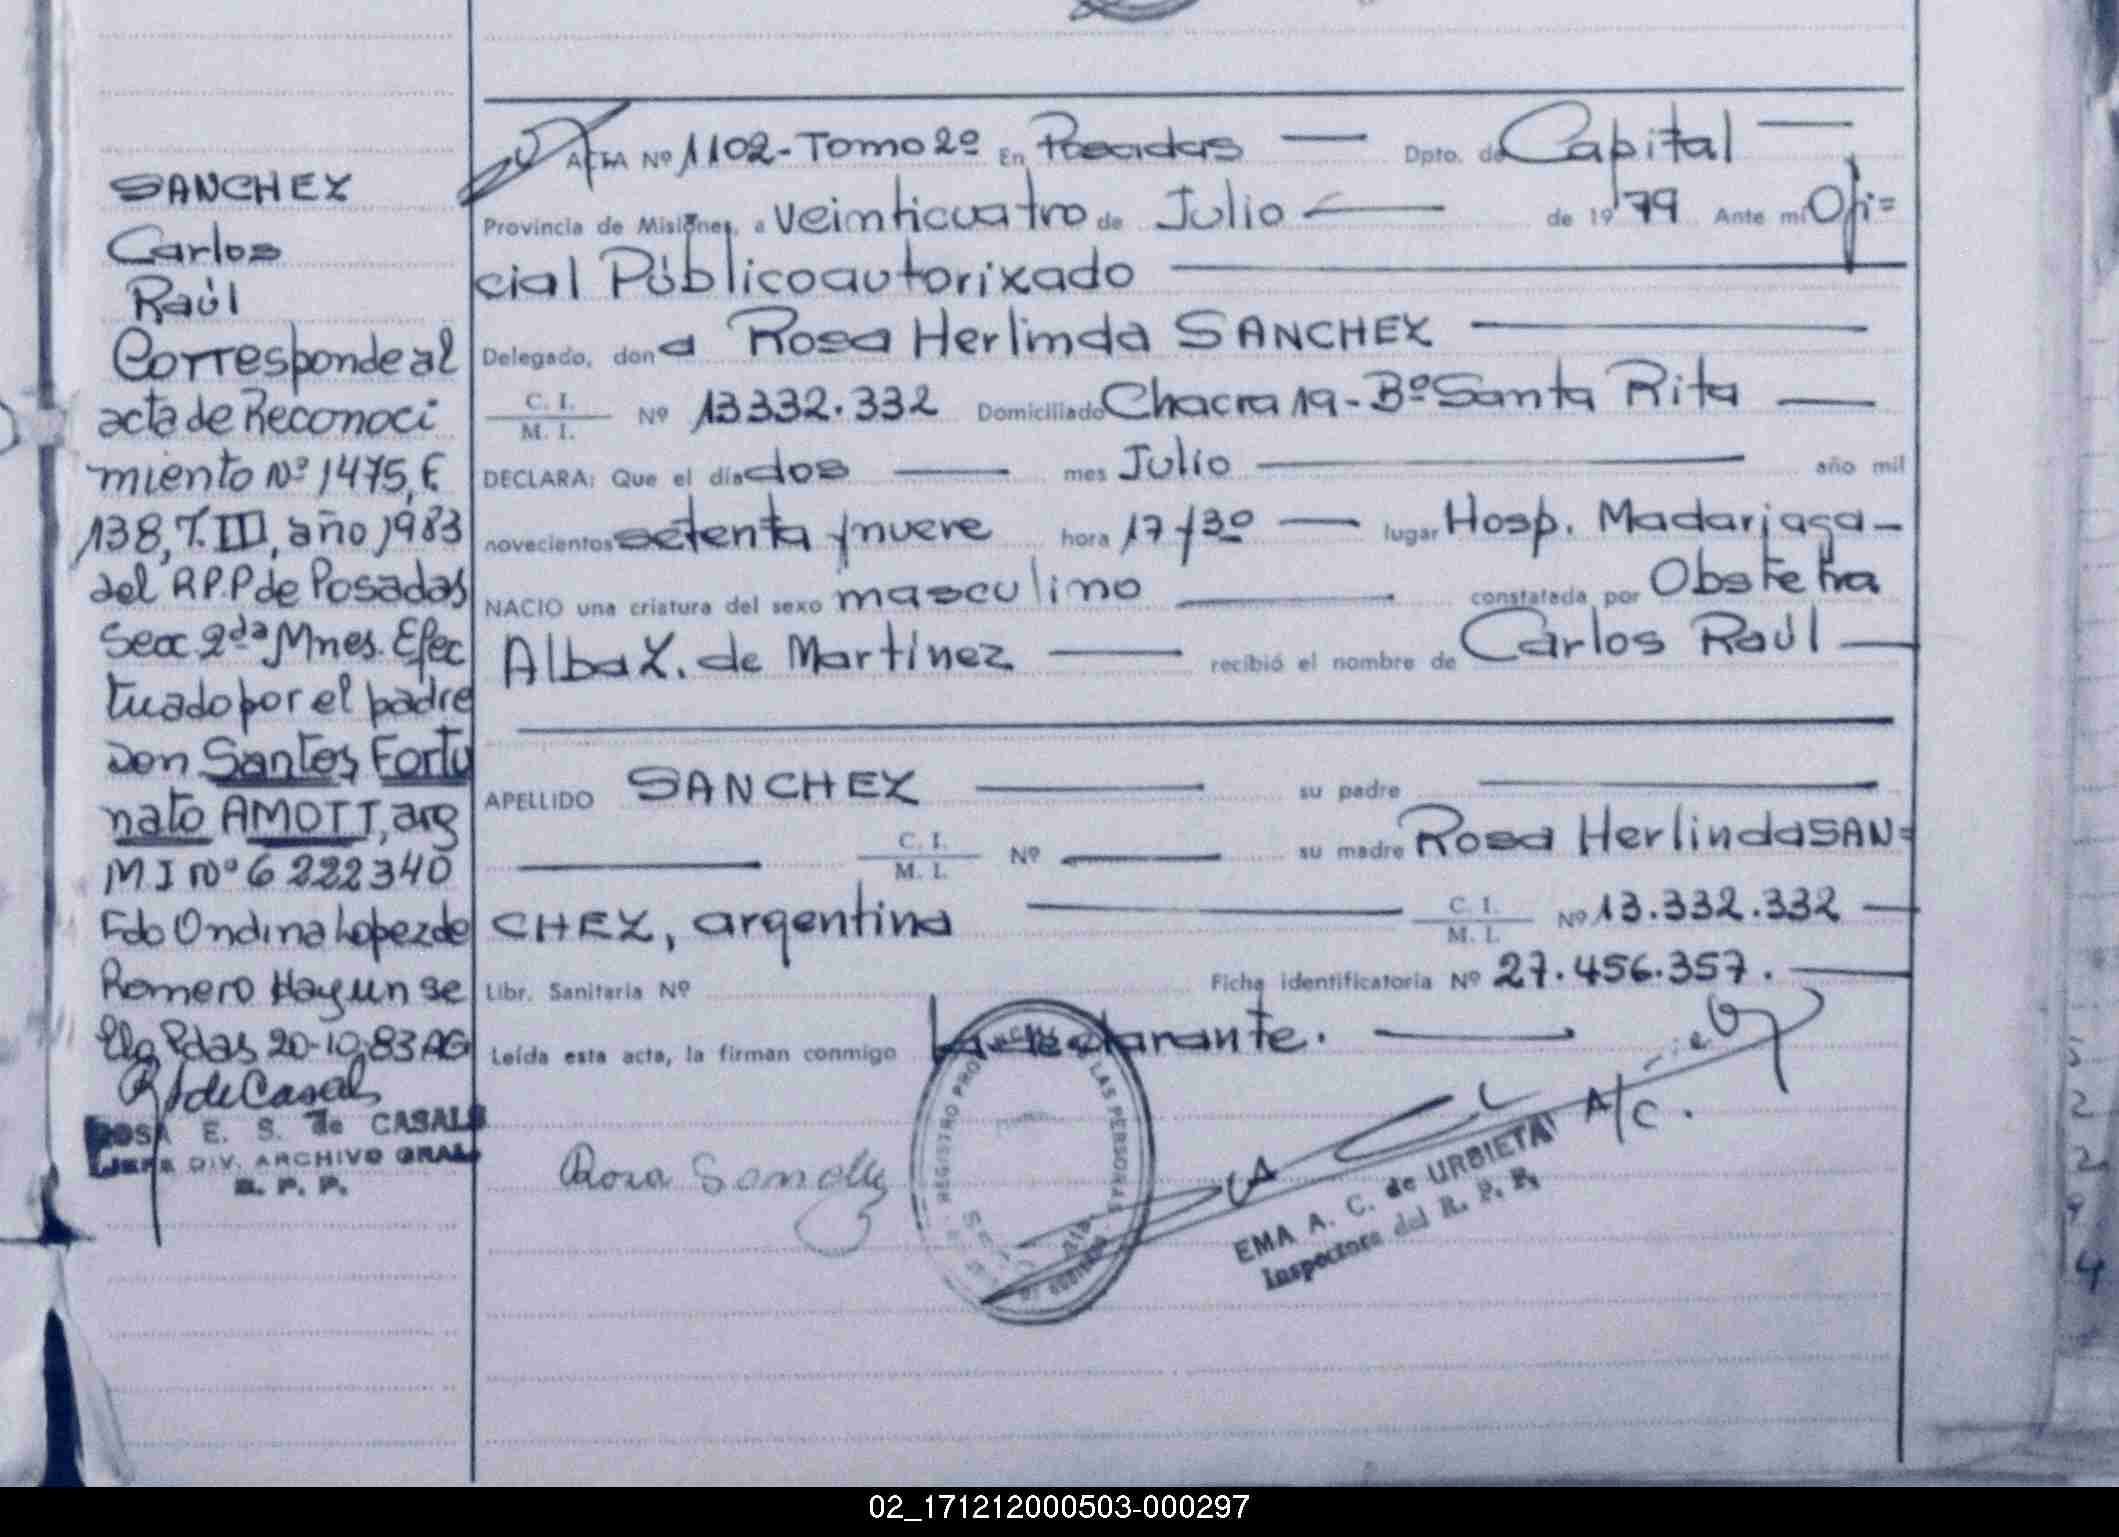 SANCHEZ
Carlos
Raúl
Corresponde al
acta de Reconoci
miento Nº 1475, F.
138, T. III, año 1983
del R.P.P de Posadas
Secc 2da Mnes. Efec
tuado por el padre
Don Santos Fortu
nato AMOTT, arg
M I Nº 6 222340
Fdo Ondina Lopez de
Romero Hay un se
llo Pdas 20-10-83 AG
ROSA E. S. de CASALS
JEFE DIV. ARCHIVO GRAL.
R. P. P.
ACTA Nº 1102-Tomo 2º En Posadas Dpto. de Capital
Provincia de Misiones, a Veinticuatro de Julio de 1979 Ante mi Ofi=
cial Público autorizado
Delegado, doña Rosa Herlinda SANCHEZ
C. I.
M. I. Nº 13332.332 Domiciliado Chacra 19-Bº Santa Rita
DECLARA: Que el día dos mes Julio año mil
novecientos setenta y nueve hora 17 y 30 lugar Hosp. Madariaga-
NACIO una criatura del sexo masculino constatada por Obstetra
Alba Z. de Martínez recibió el nombre de Carlos Raúl
APELLIDO SANCHEZ su padre
C. I.
M. I. Nº su madre Rosa Herlinda SAN=
CHEZ, argentina C. I.
M. I. Nº 13.332.332
Libr. Sanitaria Nº Ficha identificatoria Nº 27.456.357.
Leída esta acta, la firman conmigo la declarante.
REGISTRO PROVINCIAL DE LAS PERSONAS
Rosa Sanchez
A/C.
EMA A. C. de URBIETA
Inspectora del R. P. P.
02_171212000503-000297